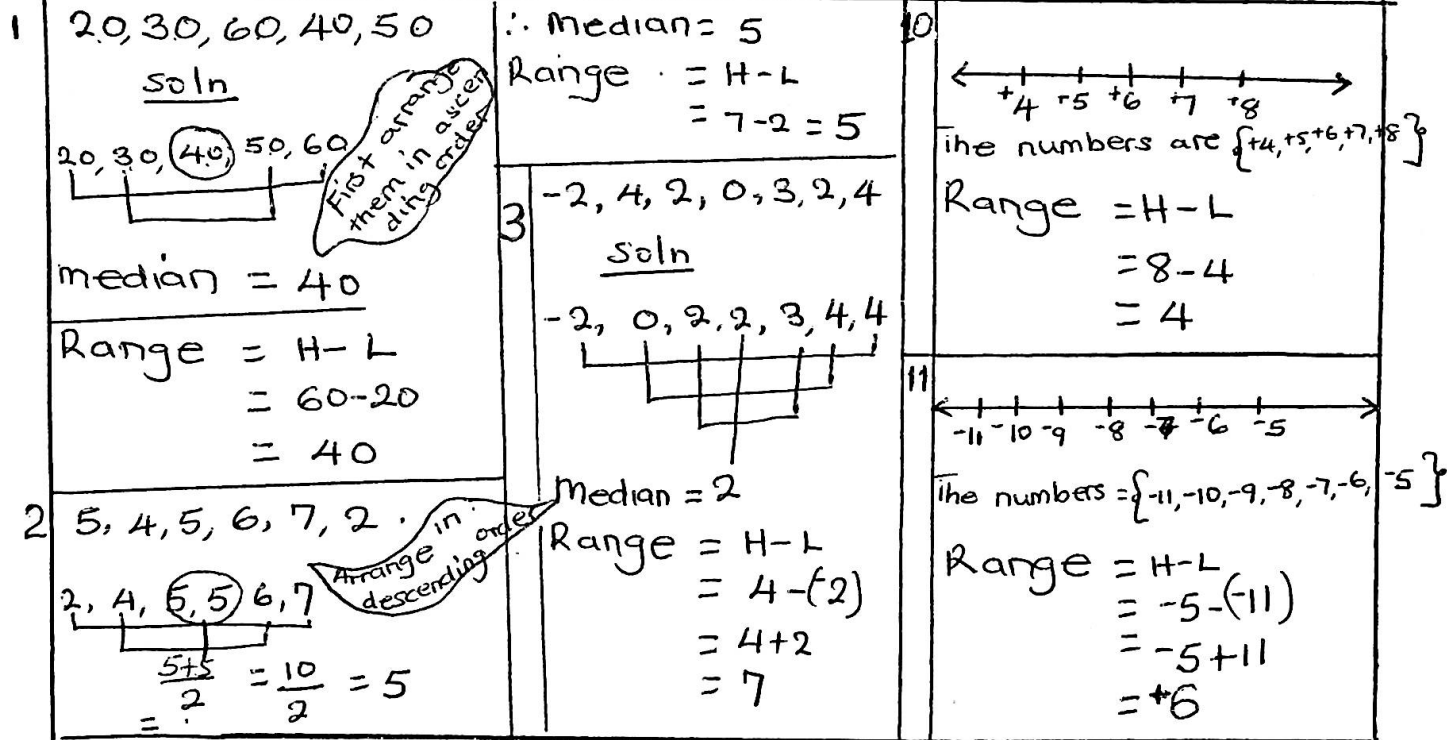 1
20, 30, 60, 40, 50
soln
20, 30, 40, 50, 60
First arrange
them in ascen
ding order
median = 40
Range = H-L
= 60-20
= 40
2
5, 4, 5, 6, 7, 2.
Arrange in
descending order
2, 4, 5, 5, 6, 7
5+5/2 = 10/2 = 5
=
∴ median = 5
Range = H-L
= 7-2 = 5
3
-2, 4, 2, 0, 3, 2, 4
soln
-2, 0, 2, 2, 3, 4, 4
Median = 2
Range = H-L
= 4-(-2)
= 4+2
= 7
10
+4 +5 +6 +7 +8
The numbers are {+4,+5,+6,+7,+8}
Range = H-L
= 8-4
= 4
11
-11 -10 -9 -8 -7 -6 -5
The numbers = {-11,-10,-9,-8,-7,-6,-5}
Range = H-L
= -5-(-11)
= -5+11
= +6